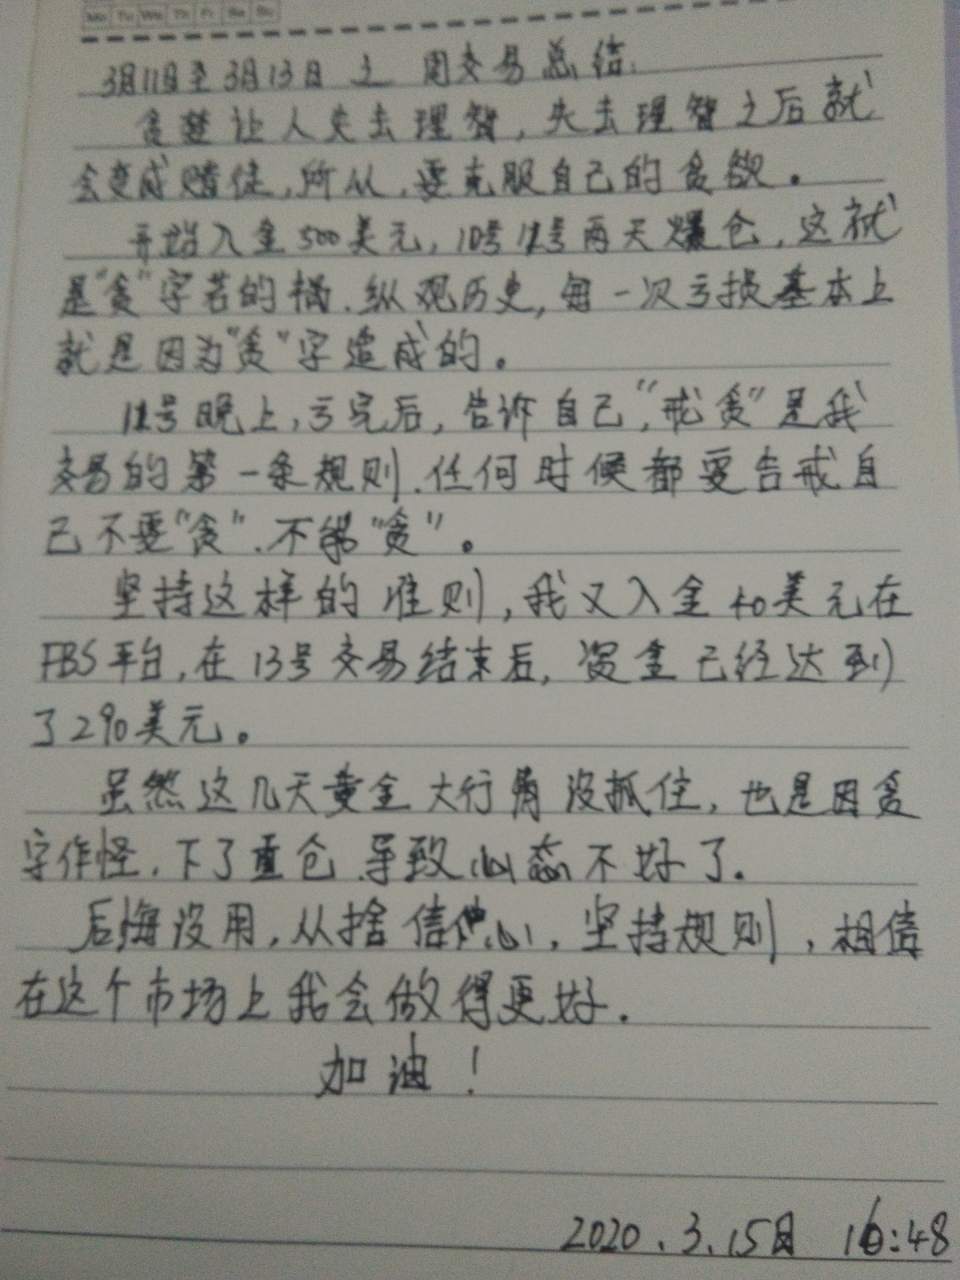 Mo Tu We Th Fr Sa Su
3月11日至3月13日 之 周交易总结.
贪婪让人失去理智,失去理智之后就
会变成赌徒,所以,要克服自己的贪欲。
开始入金500美元,10号12号两天爆仓,这就
是"贪"字若的祸.纵观历史,每一次亏损基本上
就是因为"贪"字造成的。
12号晚上,亏完后,告诉自己,"戒贪"是我
交易的第一条规则.任何时候都要告戒自
己不要"贪".不能"贪"。
坚持这样的准则,我又入金40美元在
FBS平台,在13号交易结束后,资金已经达到
了290美元。
虽然这几天黄金大行情没抓住,也是因贪
字作怪,下了重仓.导致心态不好了.
后悔没用,从拾信心,坚持规则,相信
在这个市场上我会做得更好.
加油!
2020.3.15日 16:48